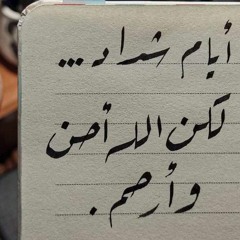 أيام شداد...
لكن الله أحن
وأرحم.